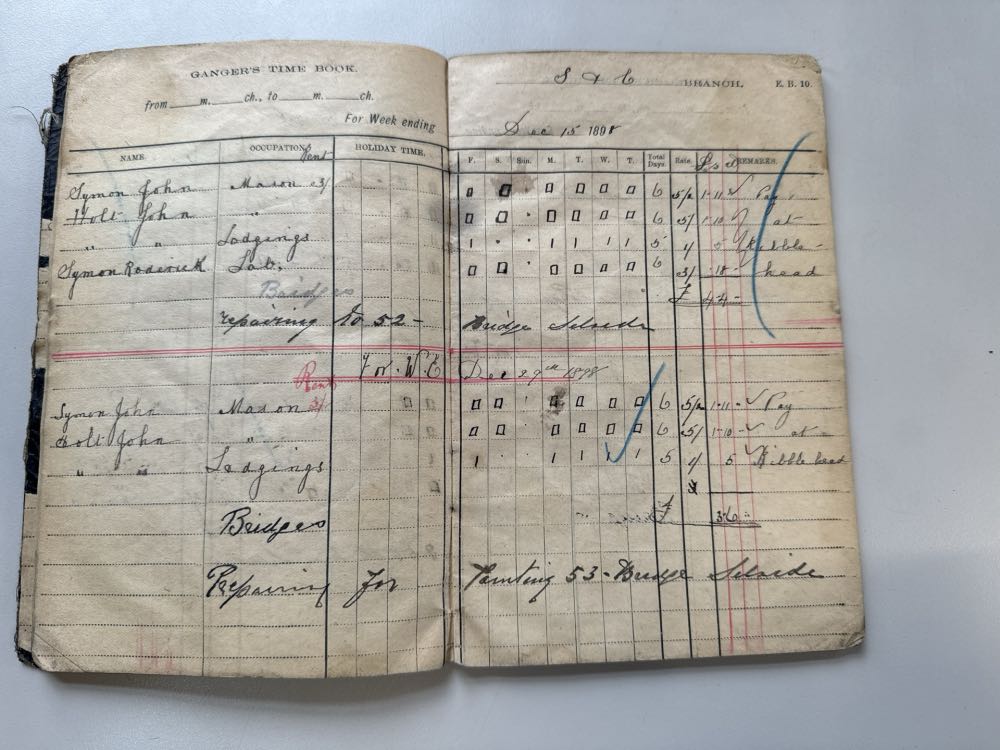 GANGER'S TIME BOOK.
S & C BRANCH. E. B. 10.
from m. ch., to m. ch.
For Week ending Dec 15 1898
NAME. OCCUPATION. Rent HOLIDAY TIME. F. S. Sun. M. T. W. T. Total Days. Rate. £ s d REMARKS.
Symon John Mason 3/ 0 0 0 0 0 0 6 5/2 1-11 - Pay
Holt John " 0 0 · 0 0 0 0 6 5/ 1-10 at
" " Lodgings 1 · · 1 1 1 1 5 1/ 5 Ribble-
Symon Roderick Lab. 0 0 · 0 0 0 0 6 3/ 18 head
Bridges £ 4-4-
repairing No 52 - Bridge Selside
For. W. E Dec 29th 1898
Rent
Symon John Mason 3/ 0 0 · 0 0 0 0 6 5/2 1-11 - Pay
Holt John " 0 0 · 0 0 0 0 6 5/ 1-10 - at
" " Lodgings 1 · · 1 1 1 1 5 1/ 5 Ribble head
Bridges £ 3-6-
Repairing For 53 - Bridge Selside